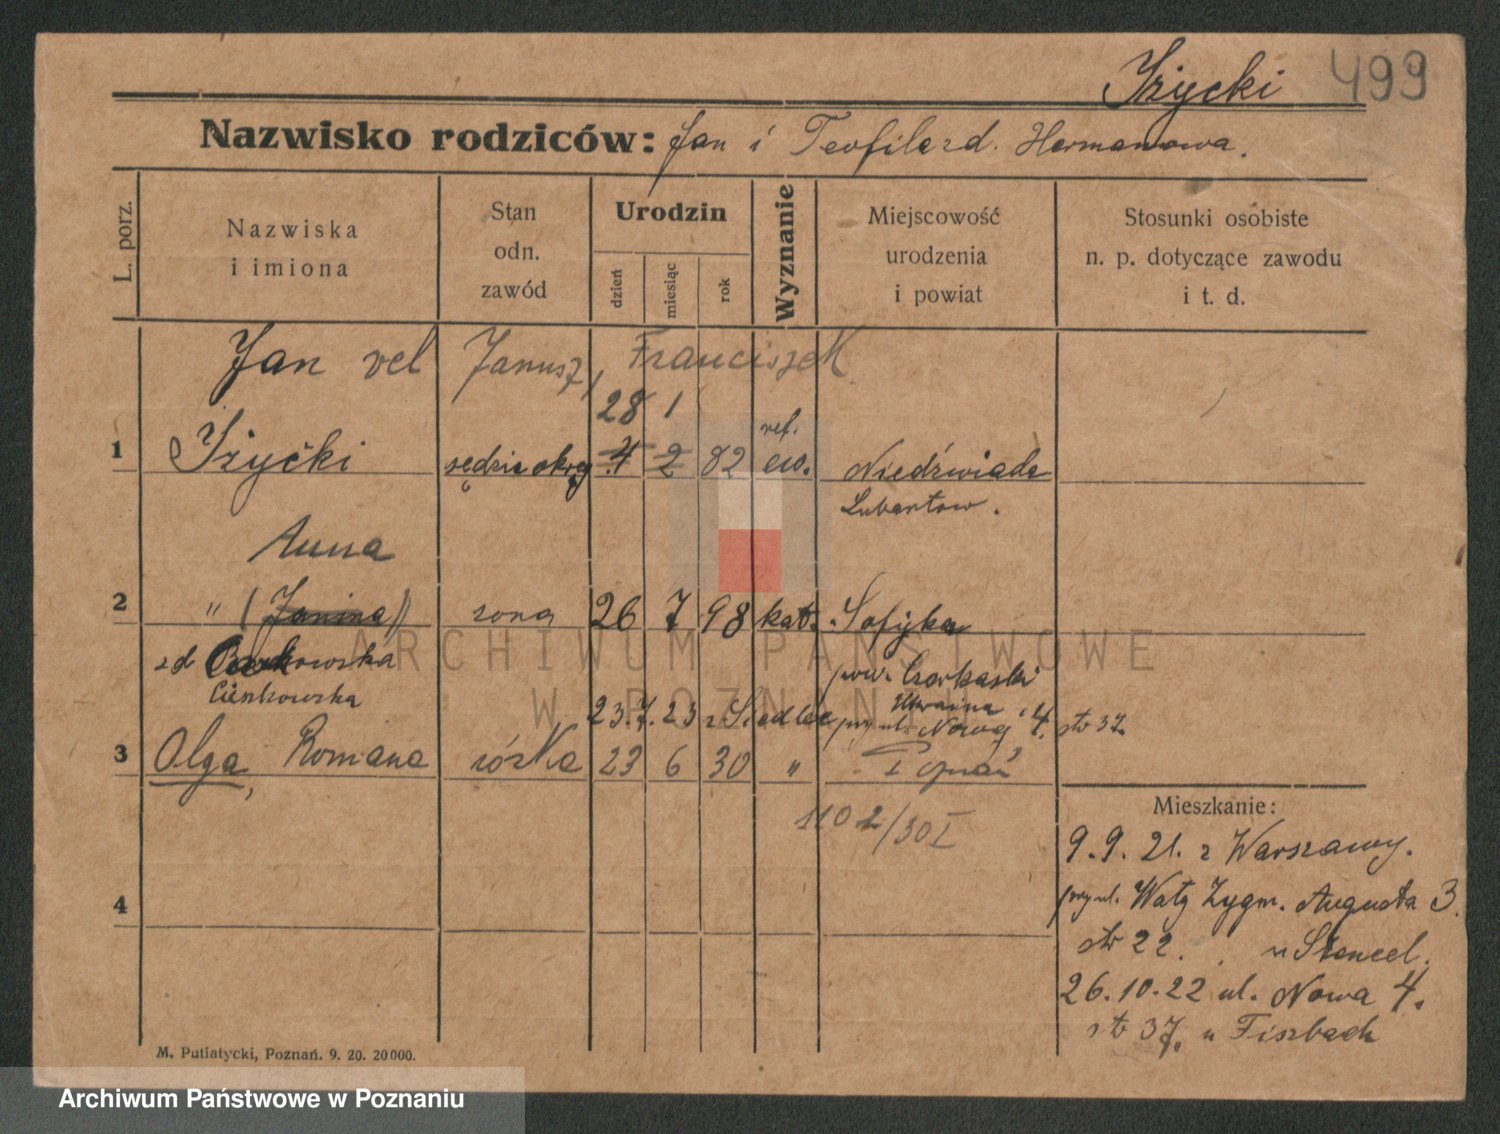 Iżycki 499
Nazwisko rodziców: Jan i Teofila zd. Hermanowa.
L. porz.
Nazwiska
i imiona
Stan
odn.
zawód
Urodzin
dzień
miesiąc
rok
Wyznanie
Miejscowość
urodzenia
i powiat
Stosunki osobiste
n. p. dotyczące zawodu
i t. d.
Jan vel Janusz, Franciszek
28 1
ref.
1 Iżycki sędzia okręg 4 2 82 ew. Niedźwiada
Lubartow.
Anna
2 " (Janina) żona 26 7 98 kat. Sofijka
zd kowska pow. Czerkaski
Cienkowska Ukraina
23.7.23 z Siedlec przy ul. Nowej 4. str 37.
3 Olga, Romana córka 23 6 30 " Poznań
1102/30 I
Mieszkanie:
9.9.21. z Warszawy.
przy ul. Wały Zygm. Augusta 3.
4
str 22. u Stencel.
26.10.22 ul. Nowa 4.
str 37. u Fiszbach
M. Putiatycki, Poznań. 9. 20. 20000.
ARCHIWUM PAŃSTWOWE
W POZNANIU
Archiwum Państwowe w Poznaniu